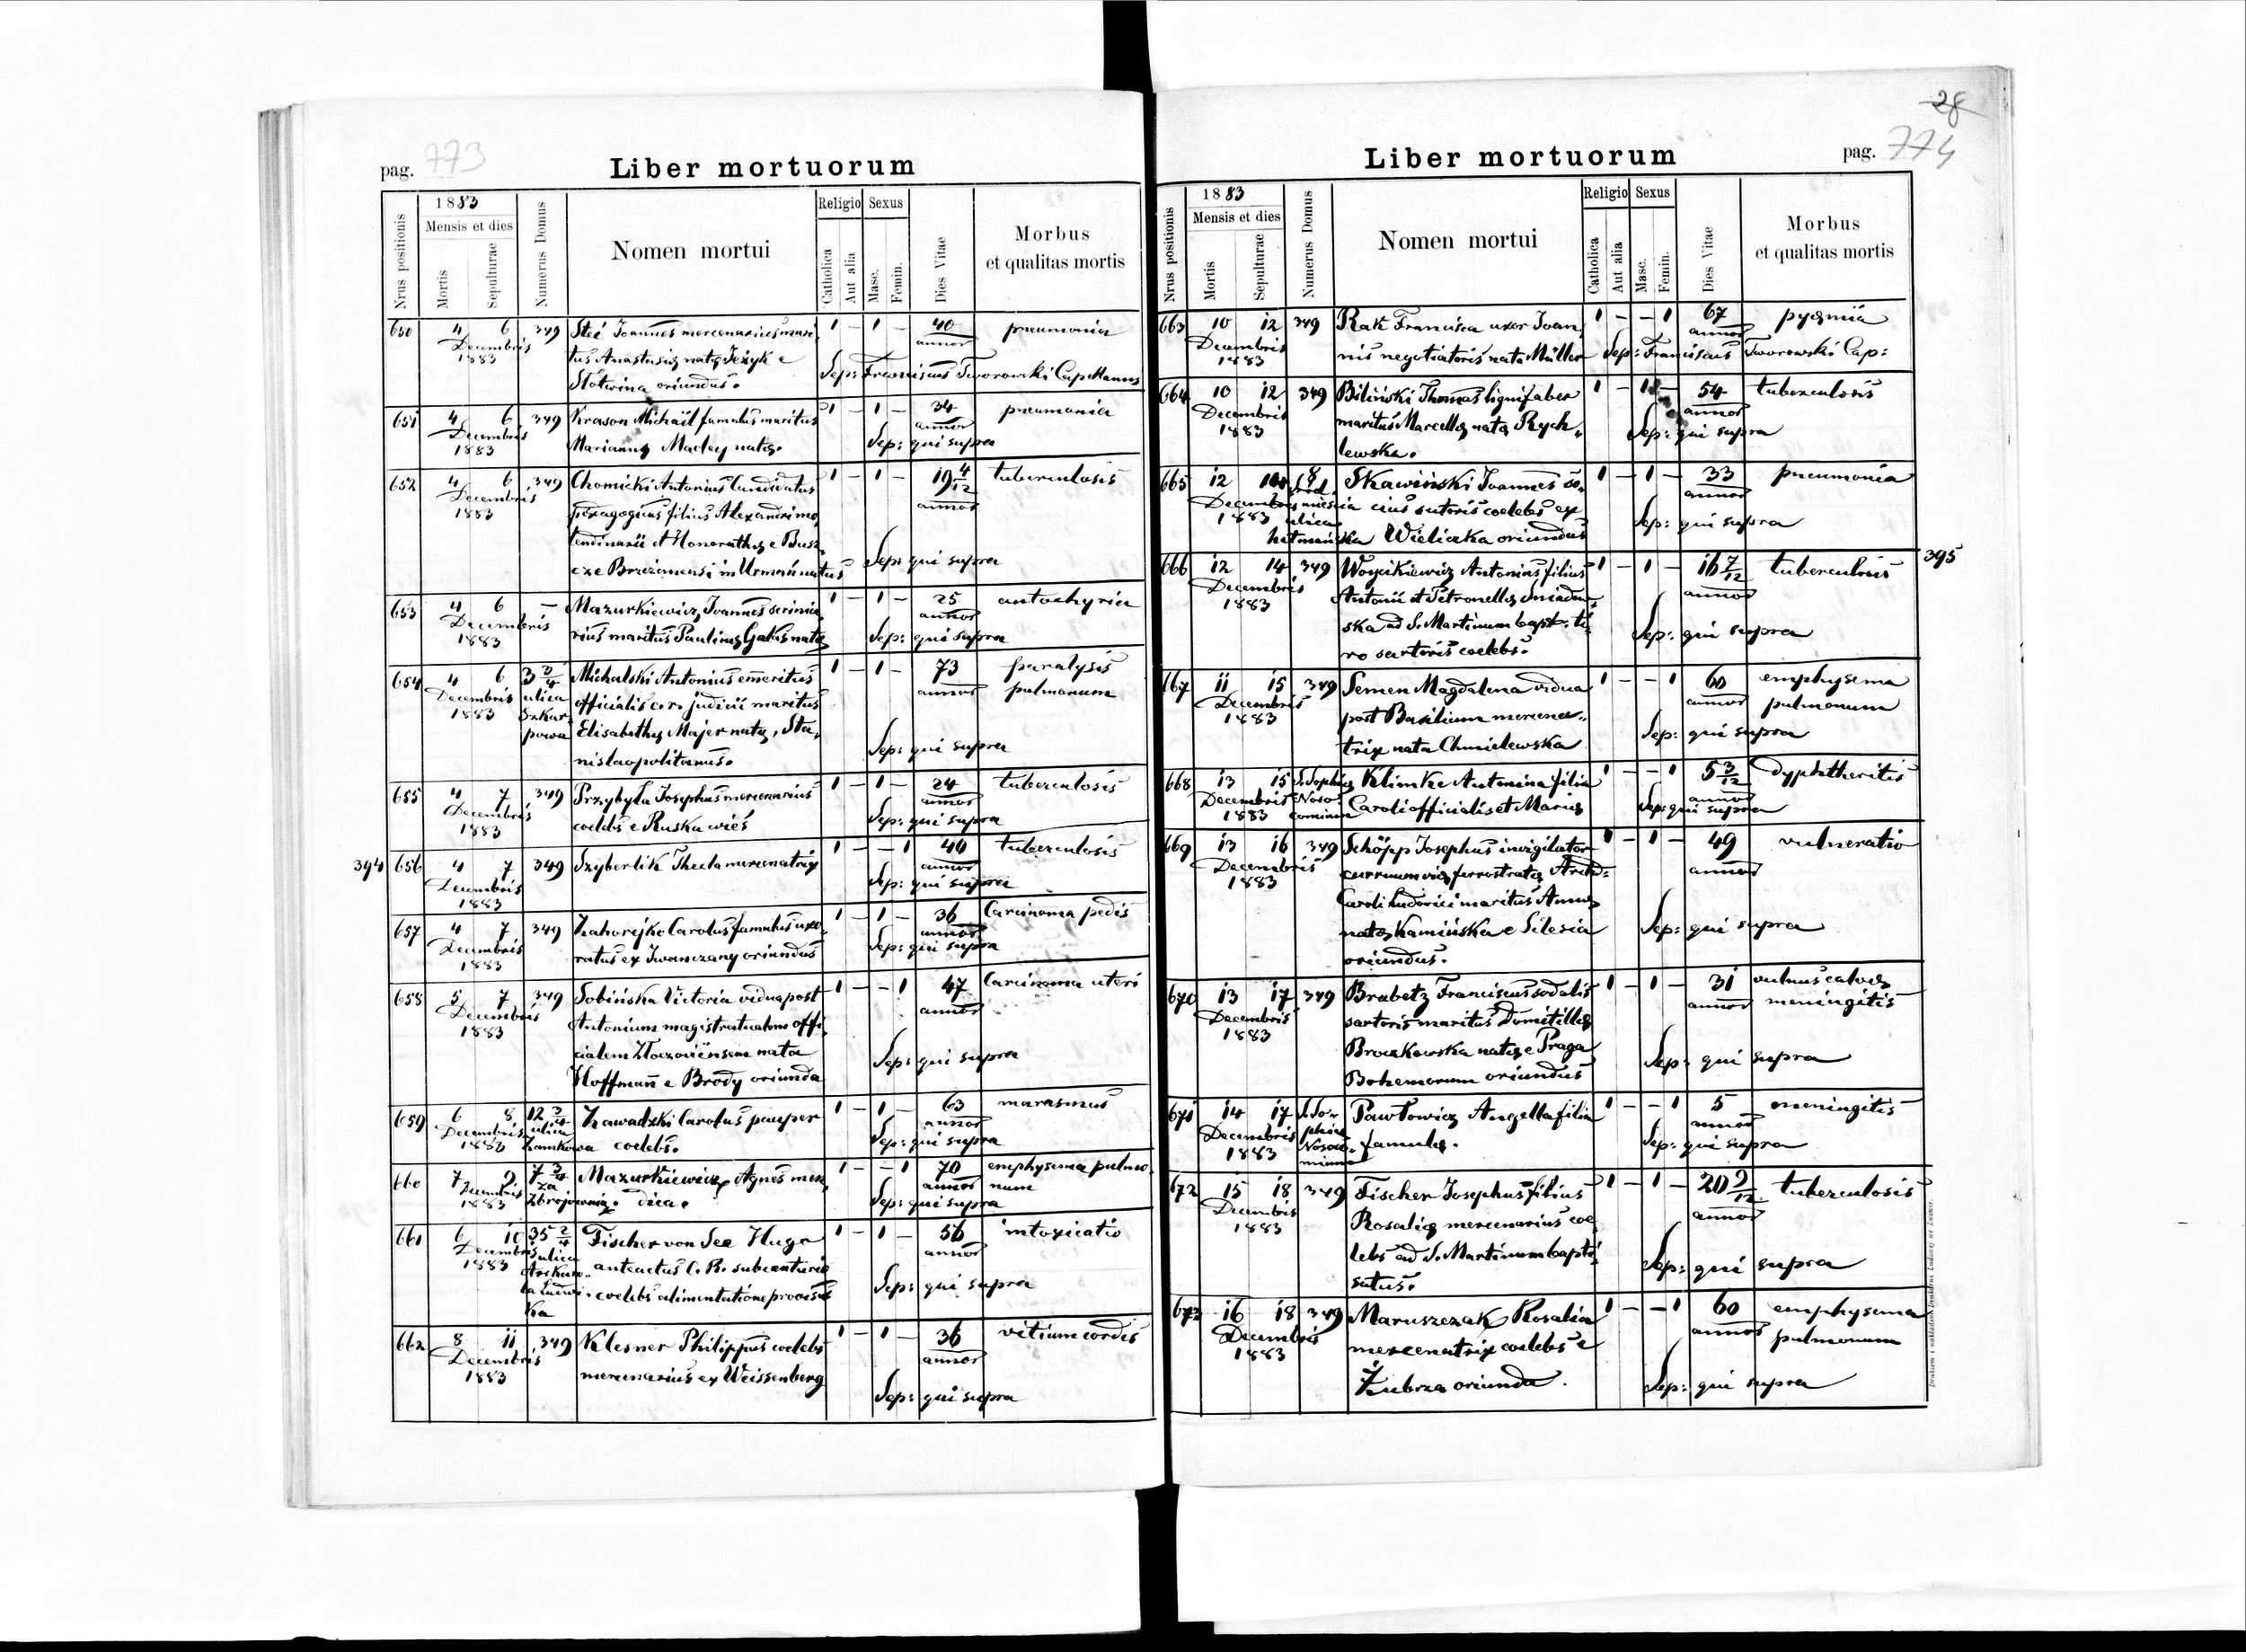 pag. 773
Liber mortuorum
1883
Religio Sexus
Mensis et dies
Nrus positionis
Mortis
Sepulturae
Numerus Domus
Nomen mortui
Catholica
Aut alia
Masc.
Femin.
Dies Vitae
Morbus
et qualitas mortis
650 4 6 349 Steć Joannes mercenarius mari 1 – 1 – 40 pneumonia
Decembris tus Anastasię natę Jeżyk e annor
1883 Słotwina oriundus. Sep: Franciscus Tworowski Capellanus
651 4 6 349 Krason Michaël famulus maritus 1 – 1 – 34 pneumonia
Decembris annor
1883 Mariannę Madey natę. Sep: qui supra
652 4 6 349 Chomicki Antonius Candidatus 1 – 1 – 19 4/12 tuberculosis
Decembris pedagogicus filius Alexandri mo annor
1883 lendinarii et Honorathę e Busz
cze Brzeżanensi in Urmań natus Sep: qui supra
653 4 6 – Mazurkiewicz Joannes scrinia 1 – 1 – 25 autochyria
Decembris annor
1883 rius maritus Paulinę Gakos natę Sep: qui supra
654 4 6 3 3/4 Michalski Antonius emeritus 1 – 1 – 73 paralysis
Decembris ulica officialis c. r. judicii maritus annor pulmonum
1883 Szkar
powa Elisabethę Majer natę, Sta,
nislaopolitanus. Sep: qui supra
655 4 7 349 Przybyła Josephus mercenarius 1 – 1 – 24 tuberculosis
Decembris annor
1883 coelebs e Ruska wieś Sep: qui supra
394 656 4 7 349 Szyberlik Thecla mercenatrix 1 – – 1 40 tuberculosis
Decembris annor
1883 Sep: qui supra
657 4 7 349 Zahorejko Carolus famulus uxo 1 – 1 – 36 Carcinoma pedis
Decembris annor
1883 ratus ex Iwanczany oriundus Sep: qui supra
658 5 7 349 Sobińska Victoria vidua post 1 – – 1 47 Carcinoma uteri
Decembris Antonium magistratualem offi annor
1883 cialem Złoczoviensem nata
Hoffmann e Brody oriunda Sep: qui supra
659 6 8 12 3/4 Zawadzki Carolus pauper 1 – 1 – 63 marasmus
Decembris ulica annor
1883 Zamkowa coelebs. Sep: qui supra
660 7 9 7 3/4 Mazurkiewicz Agnes men 1 – – 1 70 emphysema pulmo
Decembris za annor num
1883 Zbrojownią. dica. Sep: qui supra
661 6 10 35 2/4 Fischer von See Hugo 1 – 1 – 56 intoxicatio
Decembris ulica anteactus C. R. subcenturio annor
1883 coelebs alimentatione provisus
ka Sep: qui supra
662 8 11 349 Klesner Philippus coelebs 1 – 1 – 36 vitium cordis
Decembris annor
1883 mercenarius ex Weissenberg
Sep: qui supra
28
Liber mortuorum
pag. 774
1883
Religio Sexus
Mensis et dies
Nrus positionis
Mortis
Sepulturae
Numerus Domus
Nomen mortui
Catholica
Aut alia
Masc.
Femin.
Dies Vitae
Morbus
et qualitas mortis
663 10 12 349 Rak Francisca uxor Joan 1 – – 1 67 pyęmia
Decembris annor
1883 nis negotiatoris nata Müller Sep: Franciscus Tworowski Cap:
664 10 12 349 Biliński Thomas lignifaber 1 – 1 – 54 tuberculosis
Decembris annor
1883 maritus Marcellę natę Rych,
lewska. Sep: qui supra
665 12 14 8 Skawiński Joannes so, 1 – 1 – 33 pneumonia
Decembris annor
1883 ulica cius sutoris coelebs ex
hetmańska Wieliczka oriundus Sep: qui supra
666 12 14 349 Woycikiewicz Antonius filius 1 – 1 – 16 7/12 tuberculosis 395
Decembris Antonii et Petronellę Śniadow, annor
1883 ska ad S. Martinum bapt: ti,
ro sartoris coelebs. Sep: qui supra
667 11 15 349 Semen Magdalena vidua 1 – – 1 60 emphysema
Decembris post Basilium mercena annor pulmonum
1883 trix nata Chmielewska Sep: qui supra
668 13 15 S. Sophię Klimke Antonina filia 1 – – 1 5 3/12 dyphtheritis
Decembris Noso annor
1883 comium Caroli officialis et Marię Sep: qui supra
669 13 16 349 Schöpp Josephus invigilator 1 – 1 – 49 vulneratio
Decembris curruum vię ferrostratę Archd: annor
1883 Caroli Ludovici maritus Annę
natę Kamińska e Silesia Sep: qui supra
oriundus.
670 13 17 349 Brabetz Franciscus sodalis 1 – 1 – 31 vulnus calvę
Decembris sartoris maritus Domitillę annor meningitis
1883 Broczkowska natę e Praga
Bohemorum oriundus Sep: qui supra
671 14 17 S. So- Pawłowicz Angella filia 1 – – 1 5 meningitis
Decembris phię annor
1883 Nosoco famulę. Sep: qui supra
mium
672 15 18 349 Fischer Josephus filius 1 – 1 – 20 9/12 tuberculosis
Decembris Rosalię mercenarius coe annor
1883 lebs ad S. Martinum bapti
satus. Sep: qui supra
673 16 18 349 Maruszczak Rosalia 1 – – 1 60 emphysema
Decembris mercenatrix coelebs e annor pulmonum
1883 Żubrza oriunda. Sep: qui supra